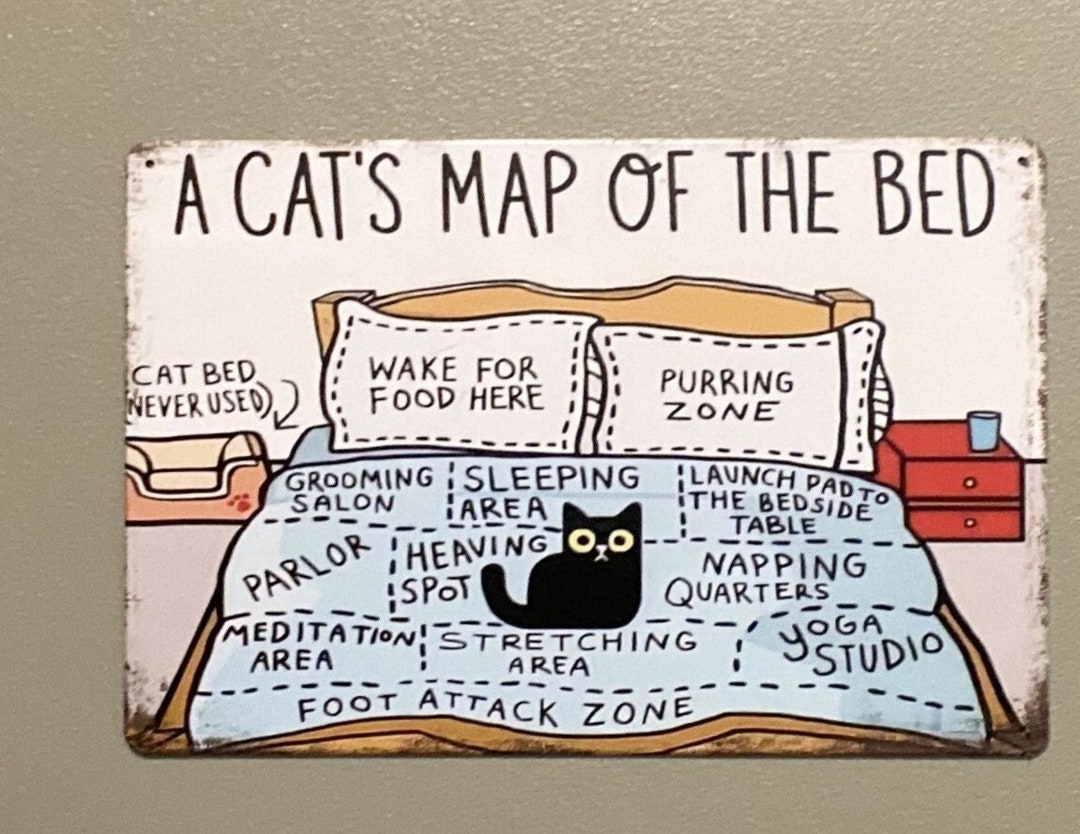 A CAT'S MAP OF THE BED
CAT BED
(NEVER USED)
WAKE FOR
FOOD HERE
PURRING
ZONE
GROOMING
SALON
SLEEPING
AREA
LAUNCH PAD TO
THE BEDSIDE
TABLE
PARLOR
HEAVING
SPOT
NAPPING
QUARTERS
MEDITATION
AREA
STRETCHING
AREA
YOGA
STUDIO
FOOT ATTACK ZONE